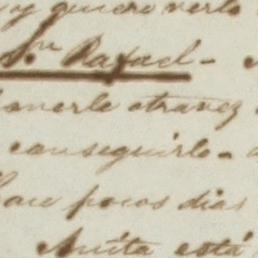 y quiero verlo
Sn Rafael -
ponerlo otra vez
conseguirlo - a
hace pocos dias
Anita está